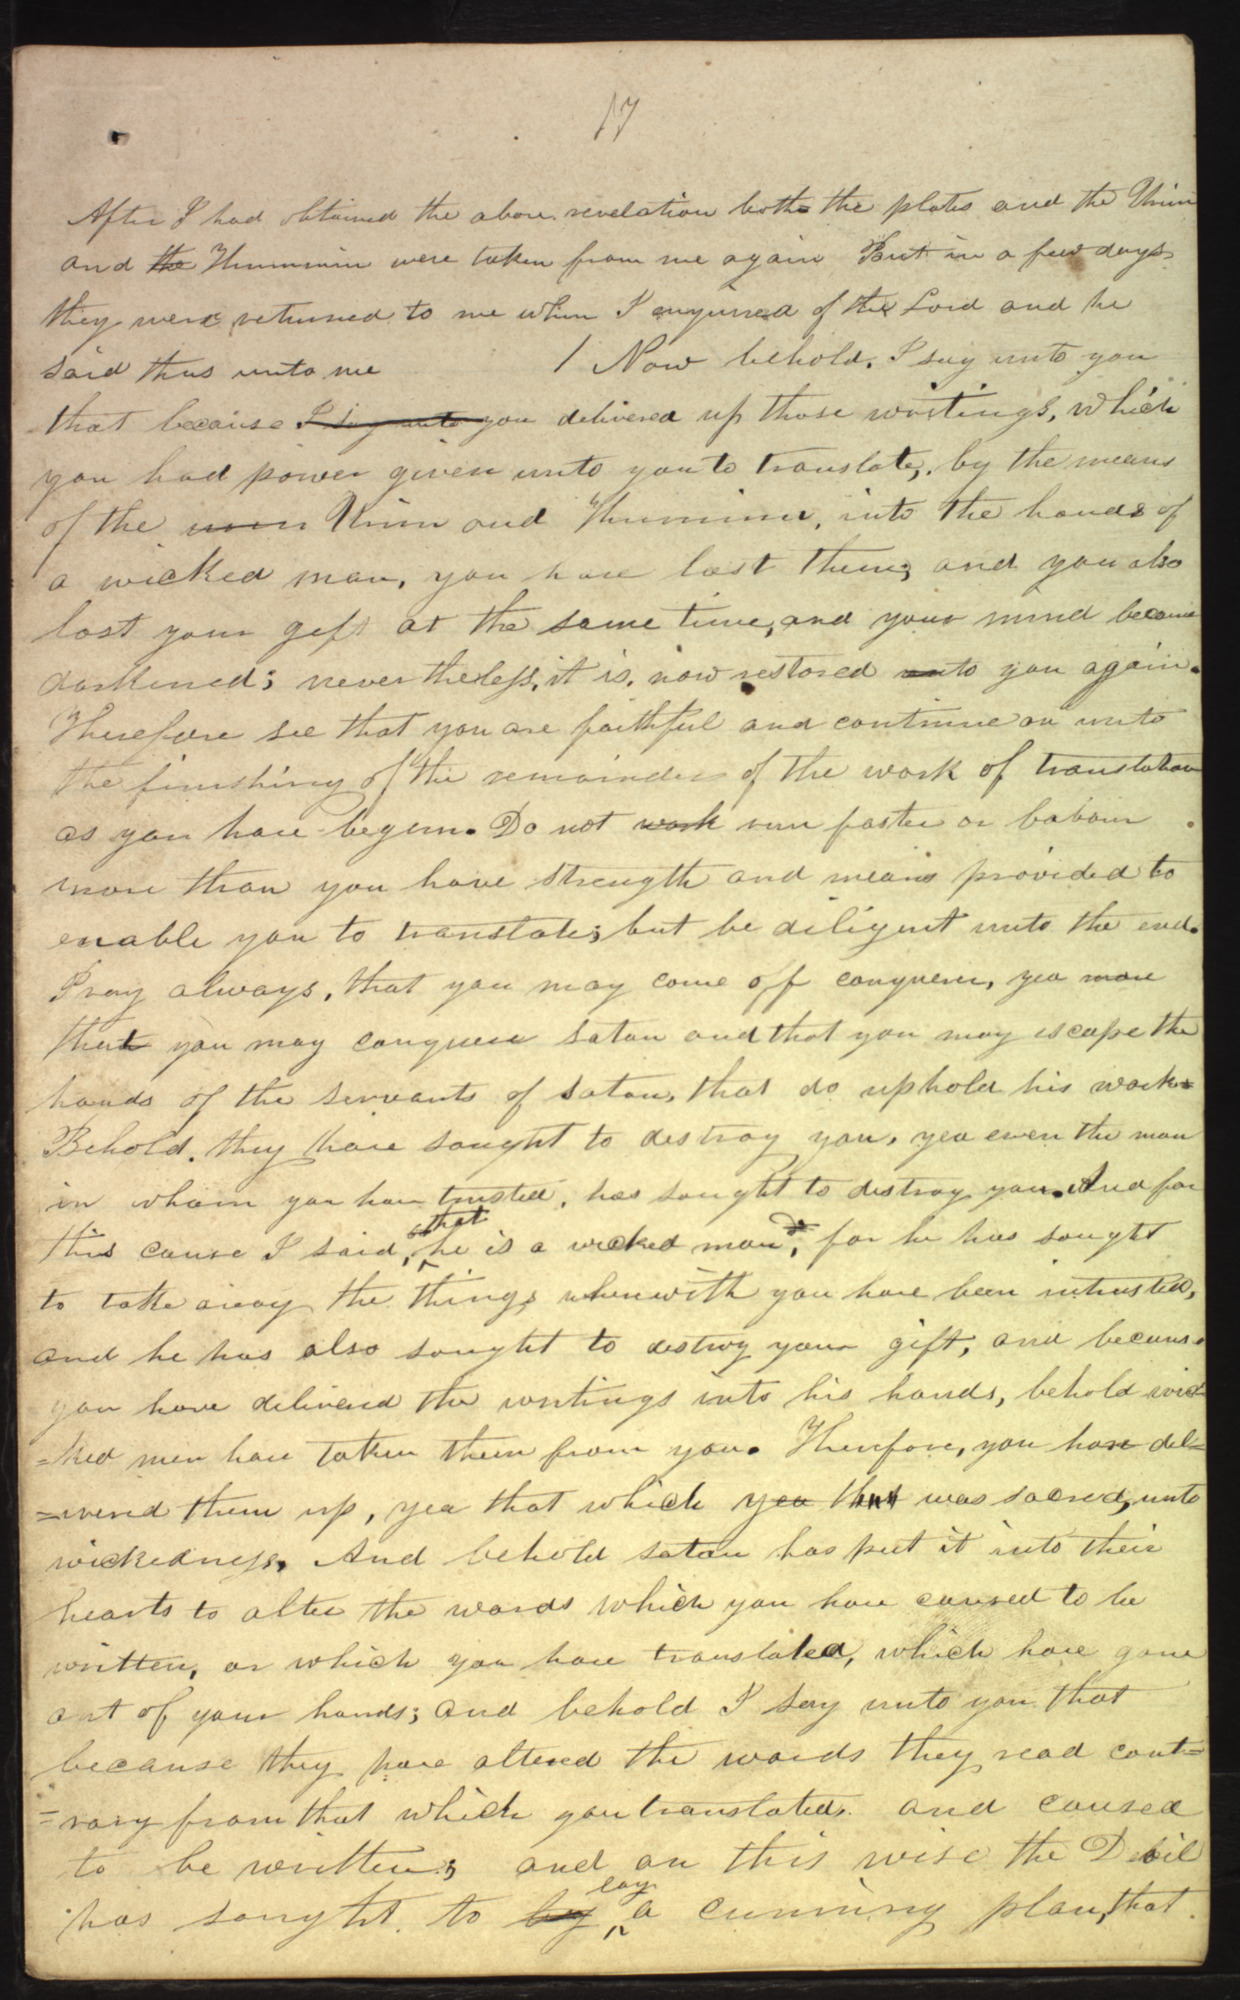 17
After I had obtained the above revelation both the plates and the Urim
and the Thummim were taken from me again But in a few days
they were returned to me when I enquired of the Lord and he
said thus unto me / Now behold, I say unto you
that because I say unto you delivered up those writings, which
you had power given unto you to translate, by the means
of the urim Urim and Thummim, into the hands of
a wicked man, you have lost them; and you also
lost your gift at the same time, and your mind became
darkened; nevertheless, it is, now restored unto you again.
Therefore see that you are faithful and continue on unto
the finishing of the remainder of the work of translation
as you have begun. Do not work run faster or labour
more than you have strength and means provided to
enable you to translate; but be diligent unto the end.
Pray always, that you may come off conquerer, yea more
that you may conquer satan and that you may escape the
hands of the servants of satan, that do uphold his work
Behold, they have sought to destroy you, yea even the man
in whom you have trusted, has sought to destroy you. And for
this cause I said, that he is a wicked man, for he has sought
to take away the things wherewith you have been intrusted,
and he has also sought to destroy your gift, and because
you have delivered the writings into his hands, behold wic
=ked men have taken them from you. Therefore, you have del=
=ivered them up, yea that which yea that was sacred, unto
wickedness, And behold satan has put it into their
hearts to alter the words which you have caused to be
written, or which you have translated, which have gone
out of your hands; and behold I say unto you that
because they have altered the words they read cont=
=rary from that which you translated. and caused
to be written; and on this wise the Devil
has sought to by lay a cunning plan, that